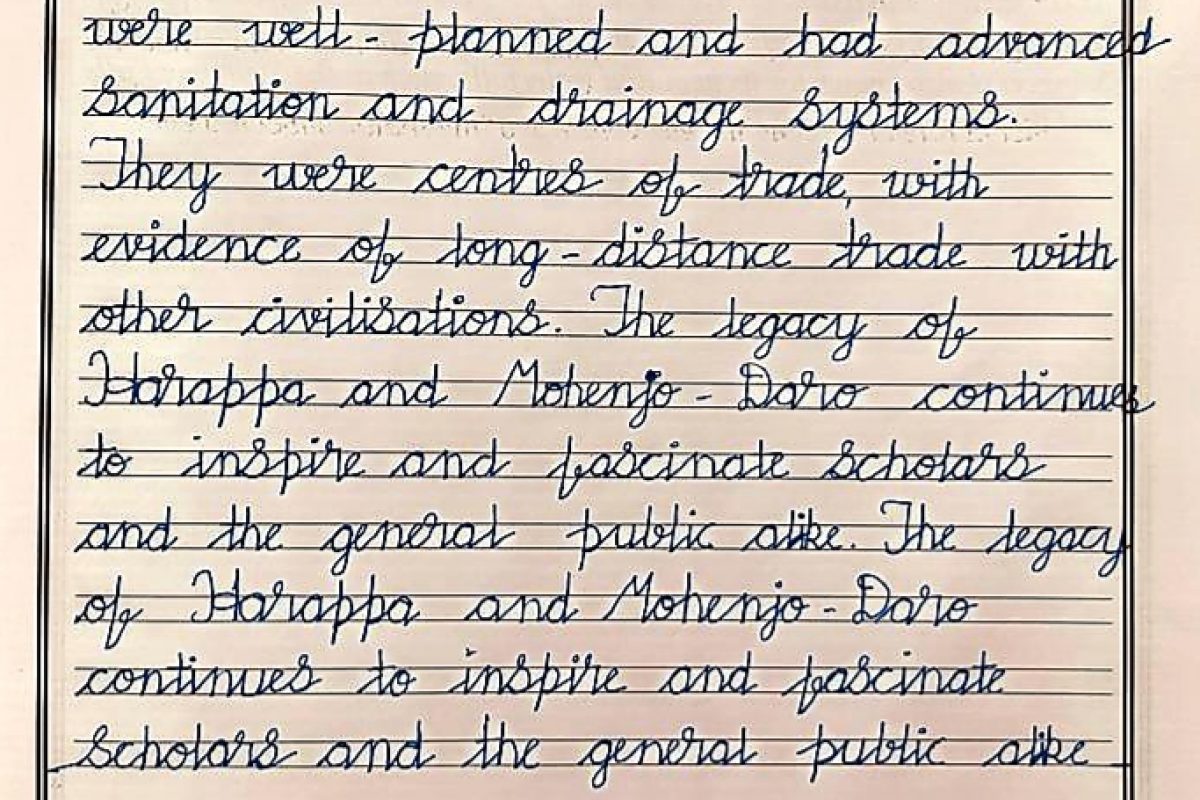 were well - planned and had advanced
sanitation and drainage systems.
They were centres of trade, with
evidence of long - distance trade with
other civilisations. The legacy of
Harappa and Mohenjo - Daro continues
to inspire and fascinate scholars
and the general public alike. The legacy
of Harappa and Mohenjo - Daro
continues to inspire and fascinate
scholars and the general public alike